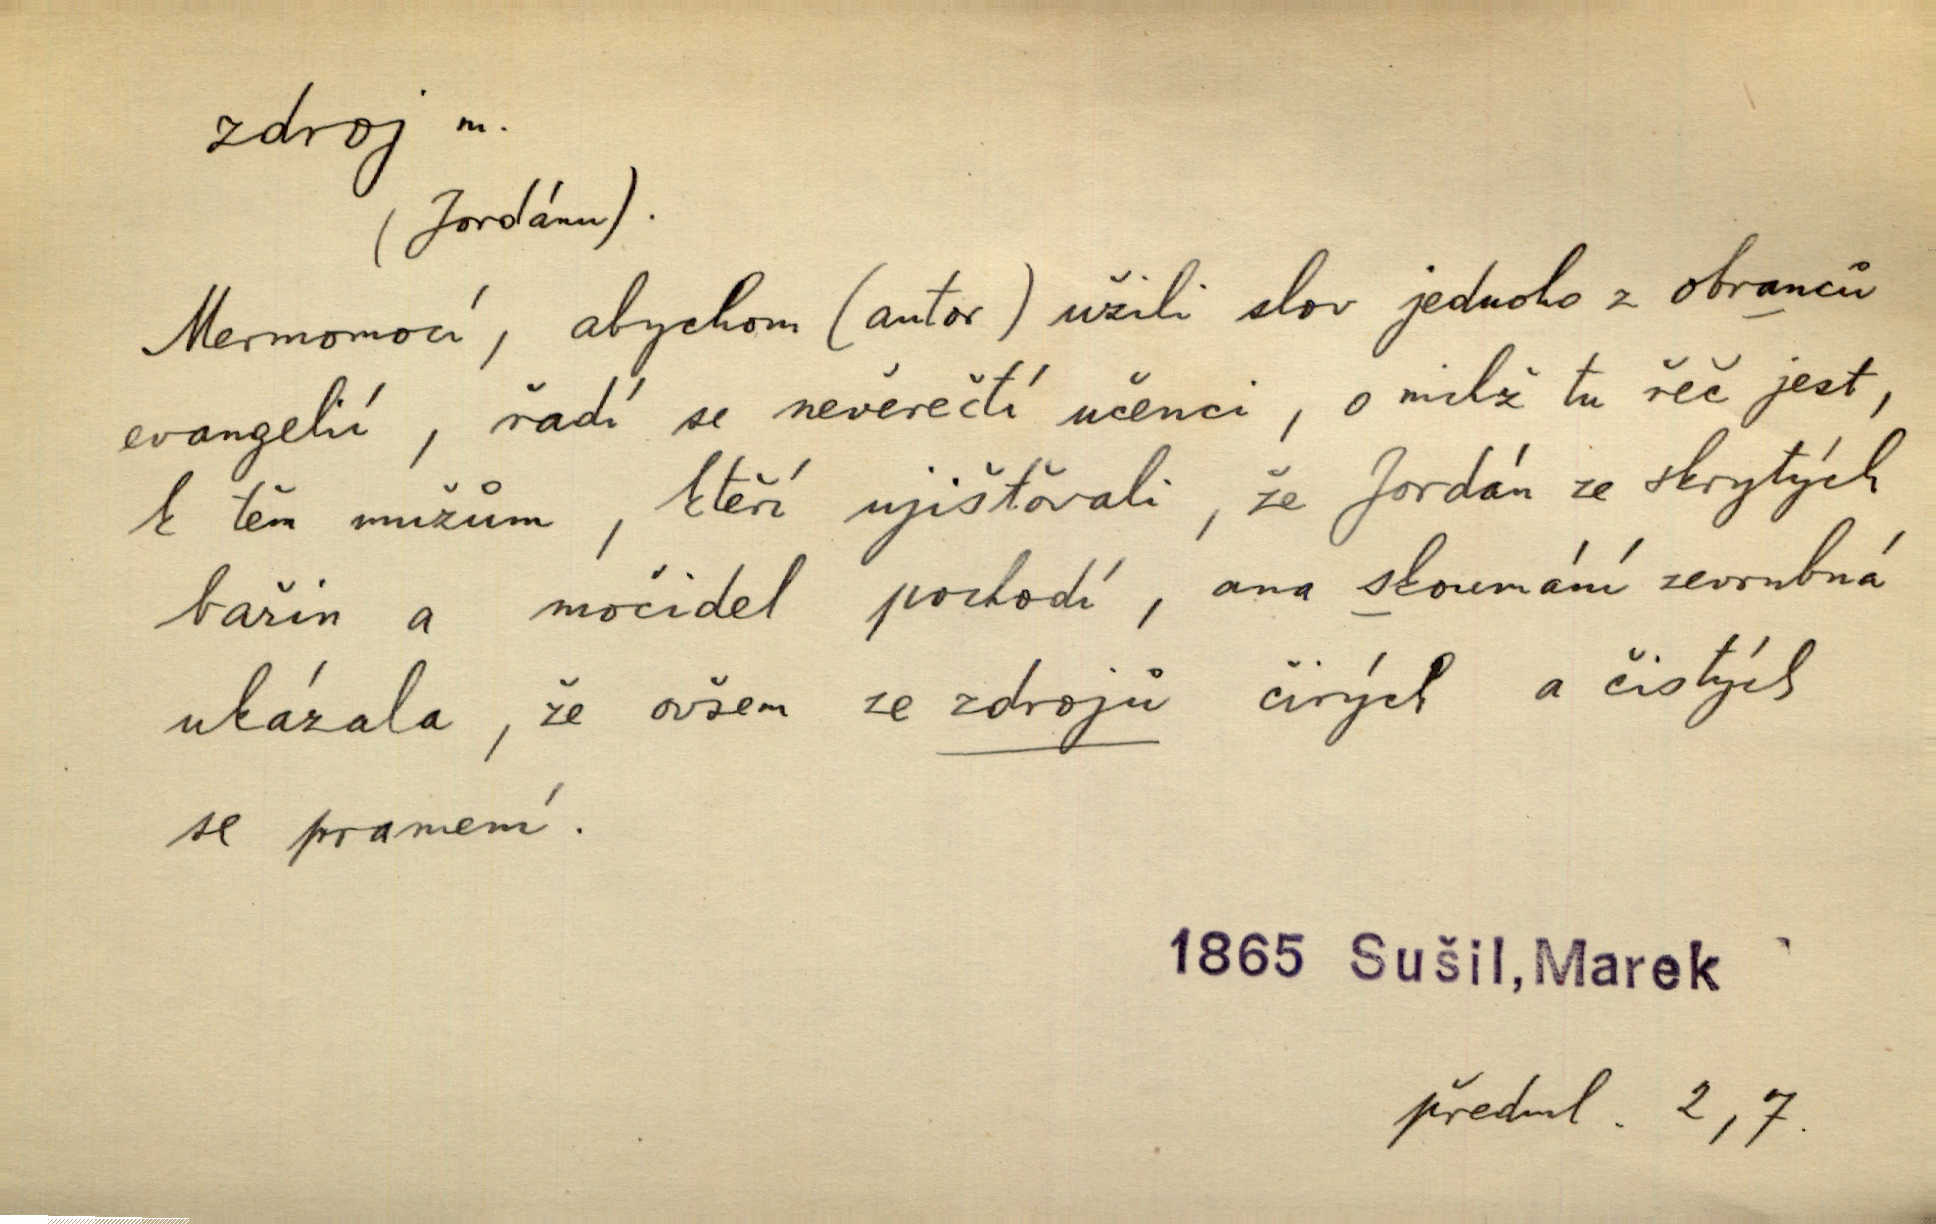 zdroj m.
(Jordánu).
Mermomocí, abychom (autor) užili slov jednoho z obranců
evangelií, řadí se nevěrečtí učenci, o nichž tu řeč jest,
k těm mužům, kteří ujišťovali, že Jordán ze skrytých
bařin a močidel pochodí, ana skoumání zevrubná
ukázala, že ovšem ze zdrojů čirých a čistých
se pramení.
1865 Sušil, Marek
předml. 2, 7.